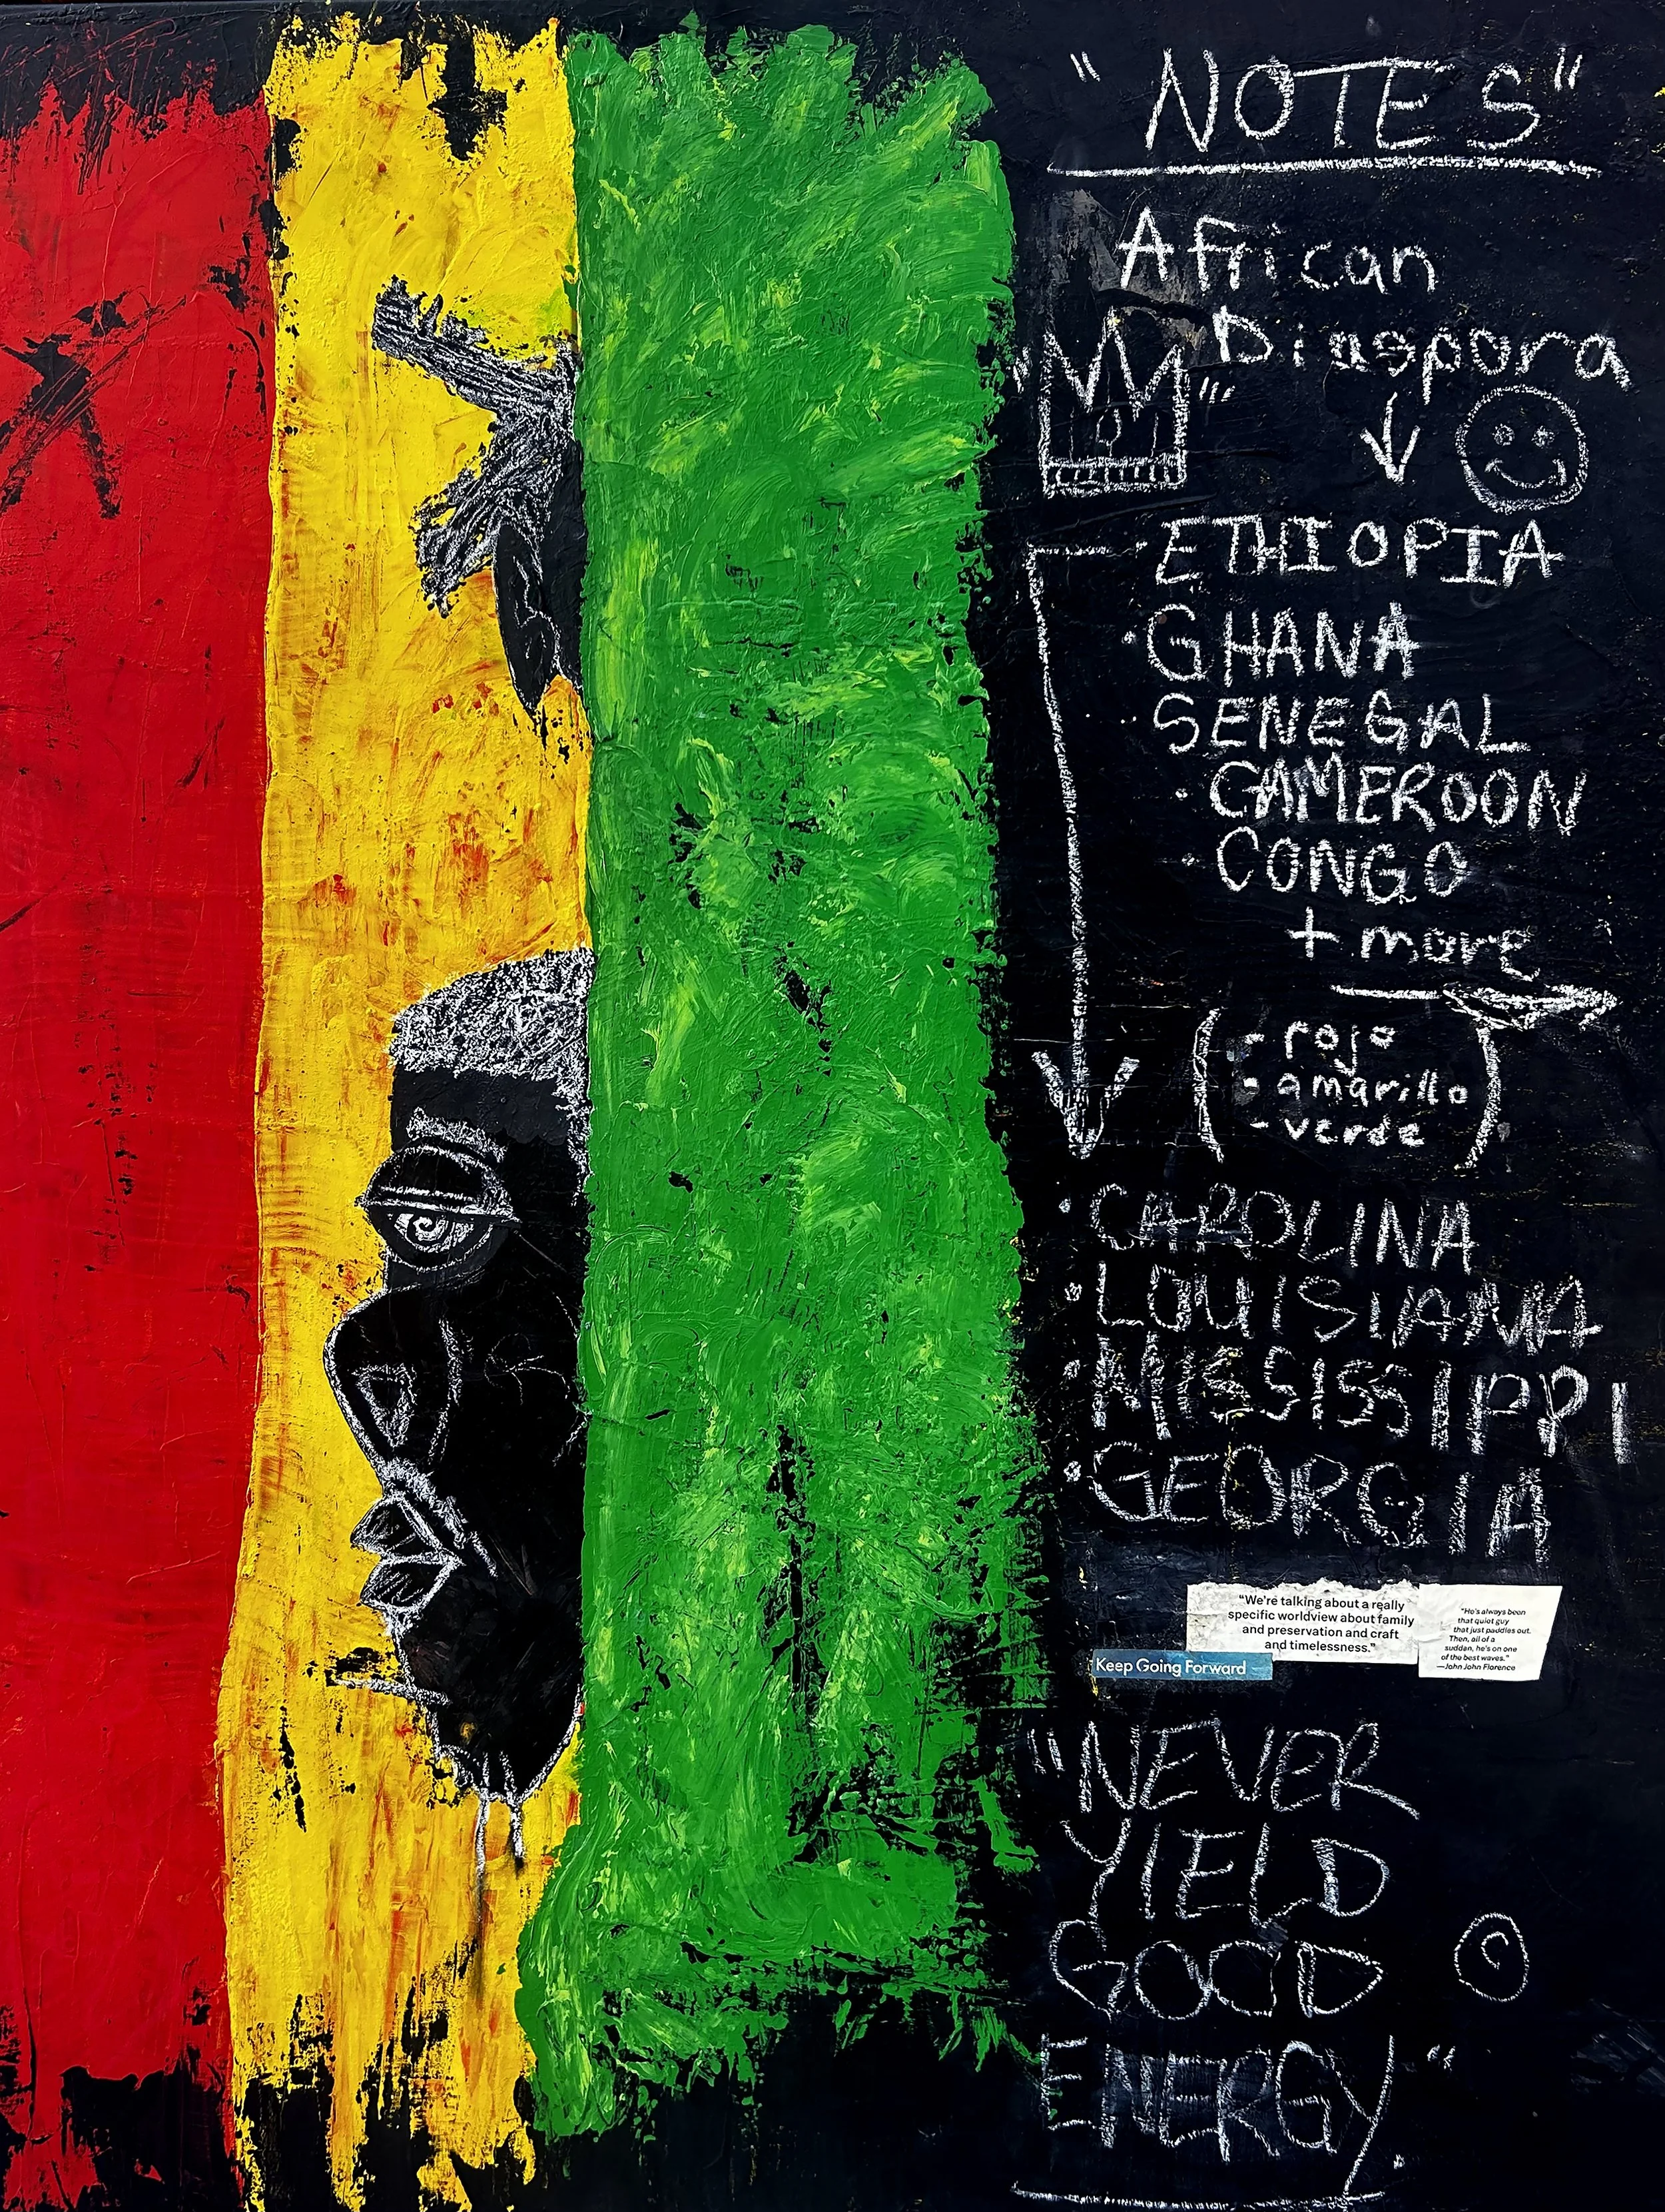 "NOTES"
African
Diaspora
ETHIOPIA
GHANA
SENEGAL
CAMEROON
CONGO
+ more
(- rojo
- amarillo
- verde)
CAROLINA
LOUISIANA
MISSISSIPPI
GEORGIA
"We're talking about a really
specific worldview about family
and preservation and craft
and timelessness."
"He's always been
that quiet guy
that just paddles out.
Then, all of a
sudden, he's on one
of the best waves."
—John John Florence
Keep Going Forward
"NEVER
YIELD
GOOD
ENERGY."